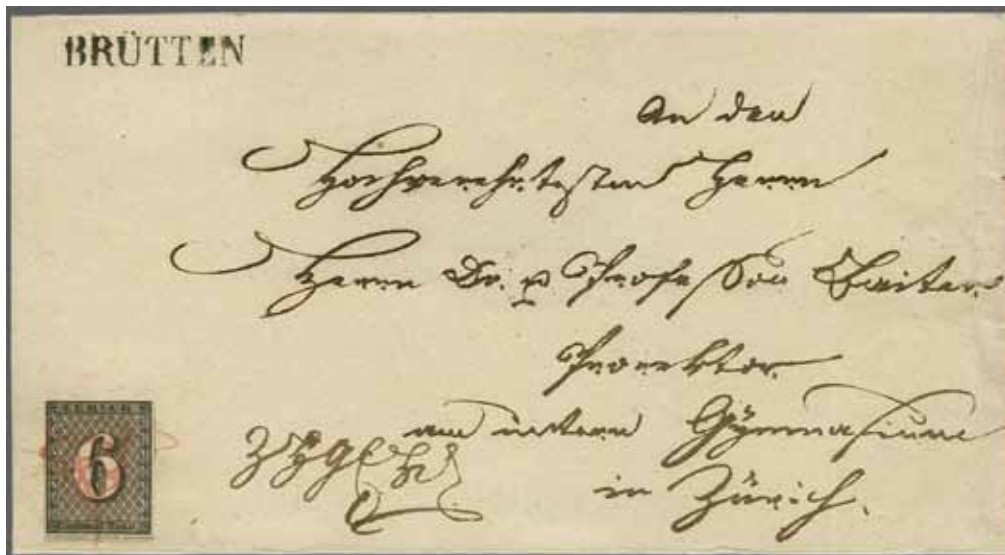 BRÜTTEN
An den
Hochverehrtesten Herrn
Herrn Dr. u Professor Baiter
Prorektor
am untern Gymnasium
in Zürich.
6